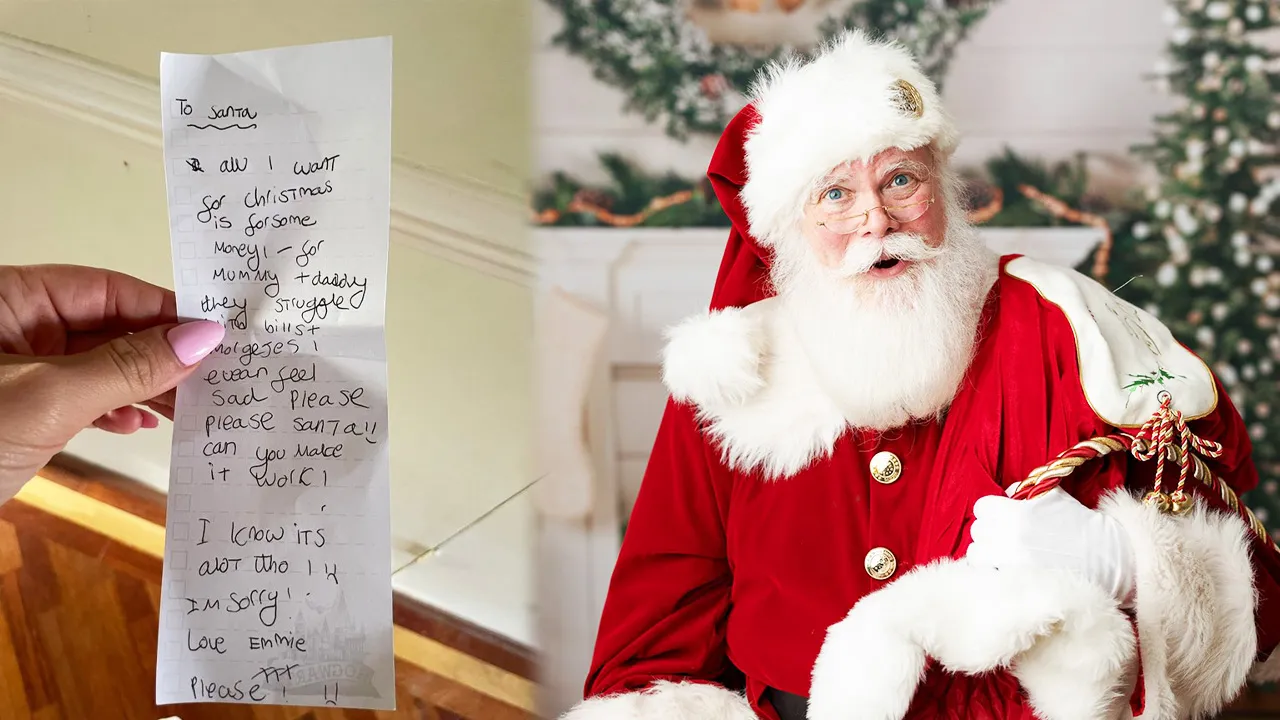 To Santa
all I want
for christmas
is for some
Money! - for
Mummy + daddy
they struggle
with bills +
morgejes !
evean feel
sad Please
please santa!!
can you Make
it work!
I know its
alot tho !
Im sorry!
Love Emmie
Please !